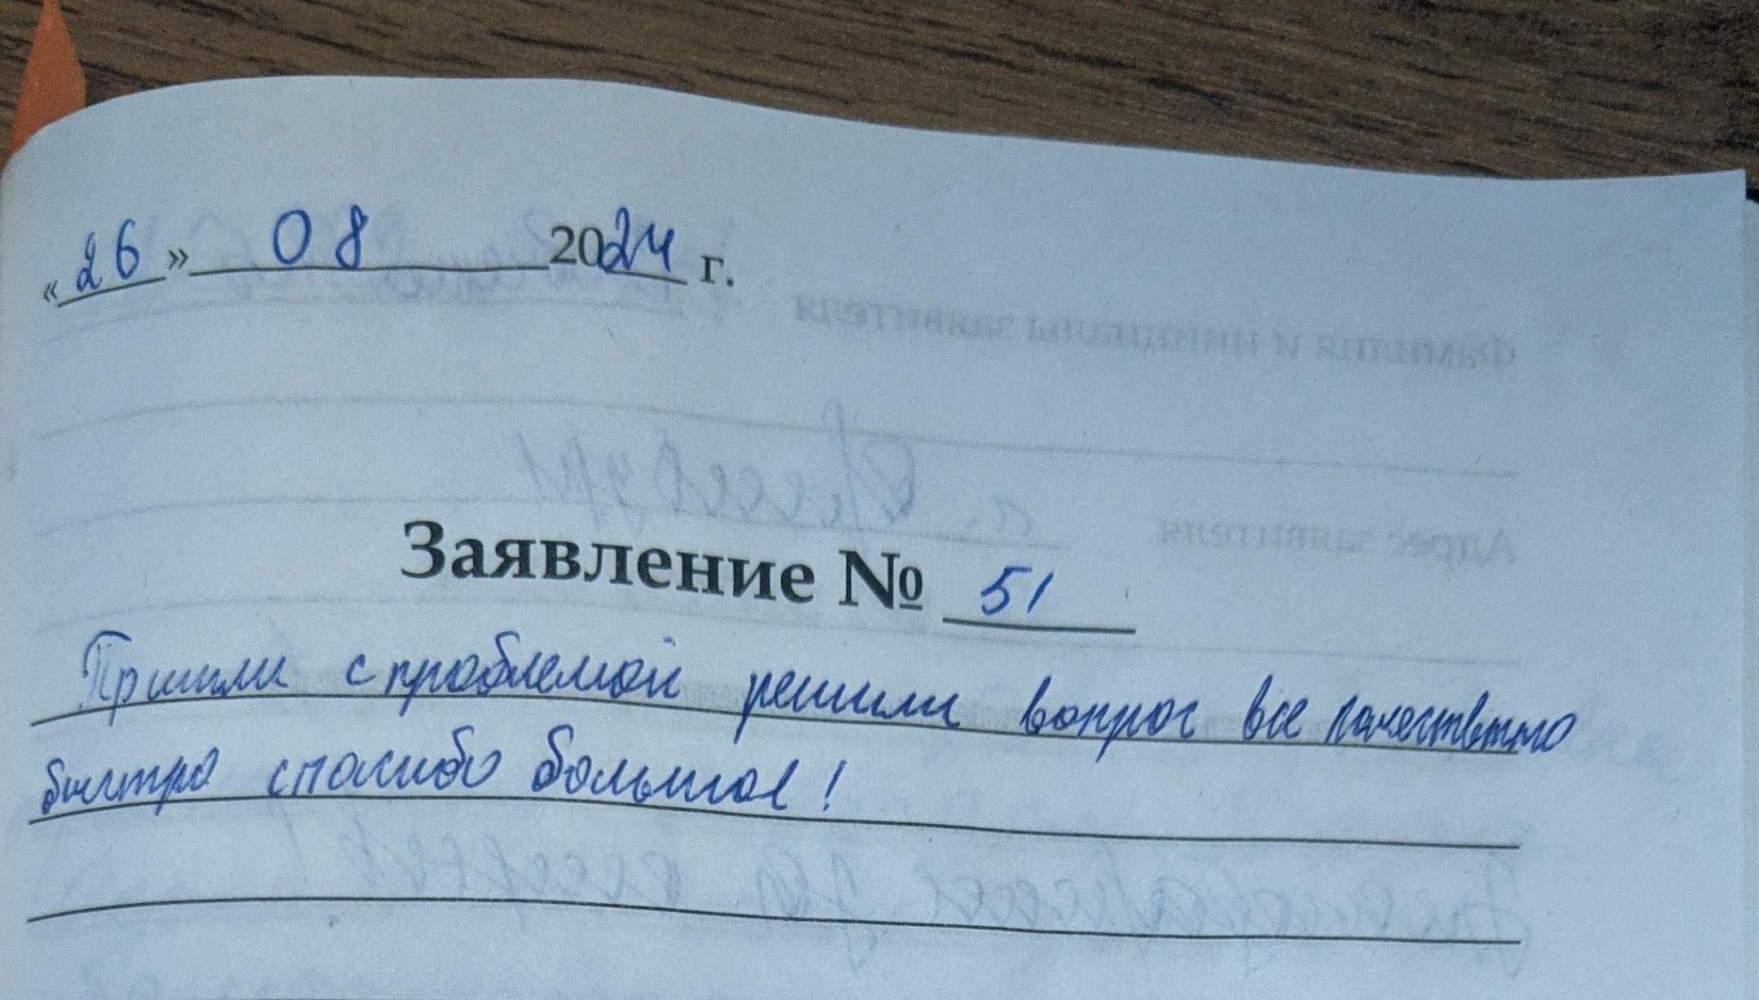 «26» 08 2024 г.
Заявление № 51
Пришли с проблемой решили вопрос все качественно
быстро спасибо большое!